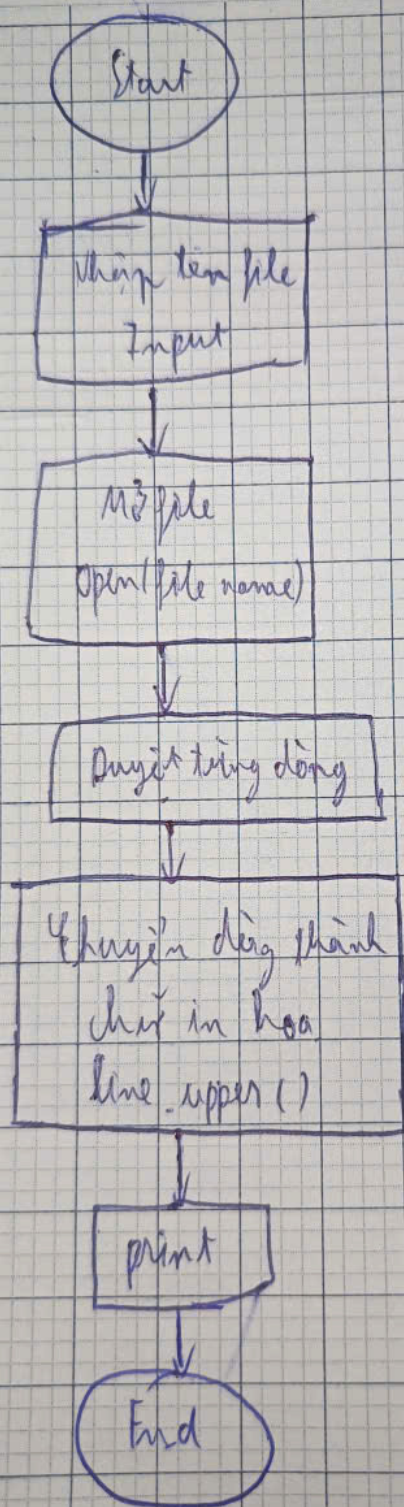 Start
Nhập tên file
Input
Mở file
Open(file name)
Duyệt từng dòng
Chuyển dòng thành
chữ in hoa
line.upper()
print
End